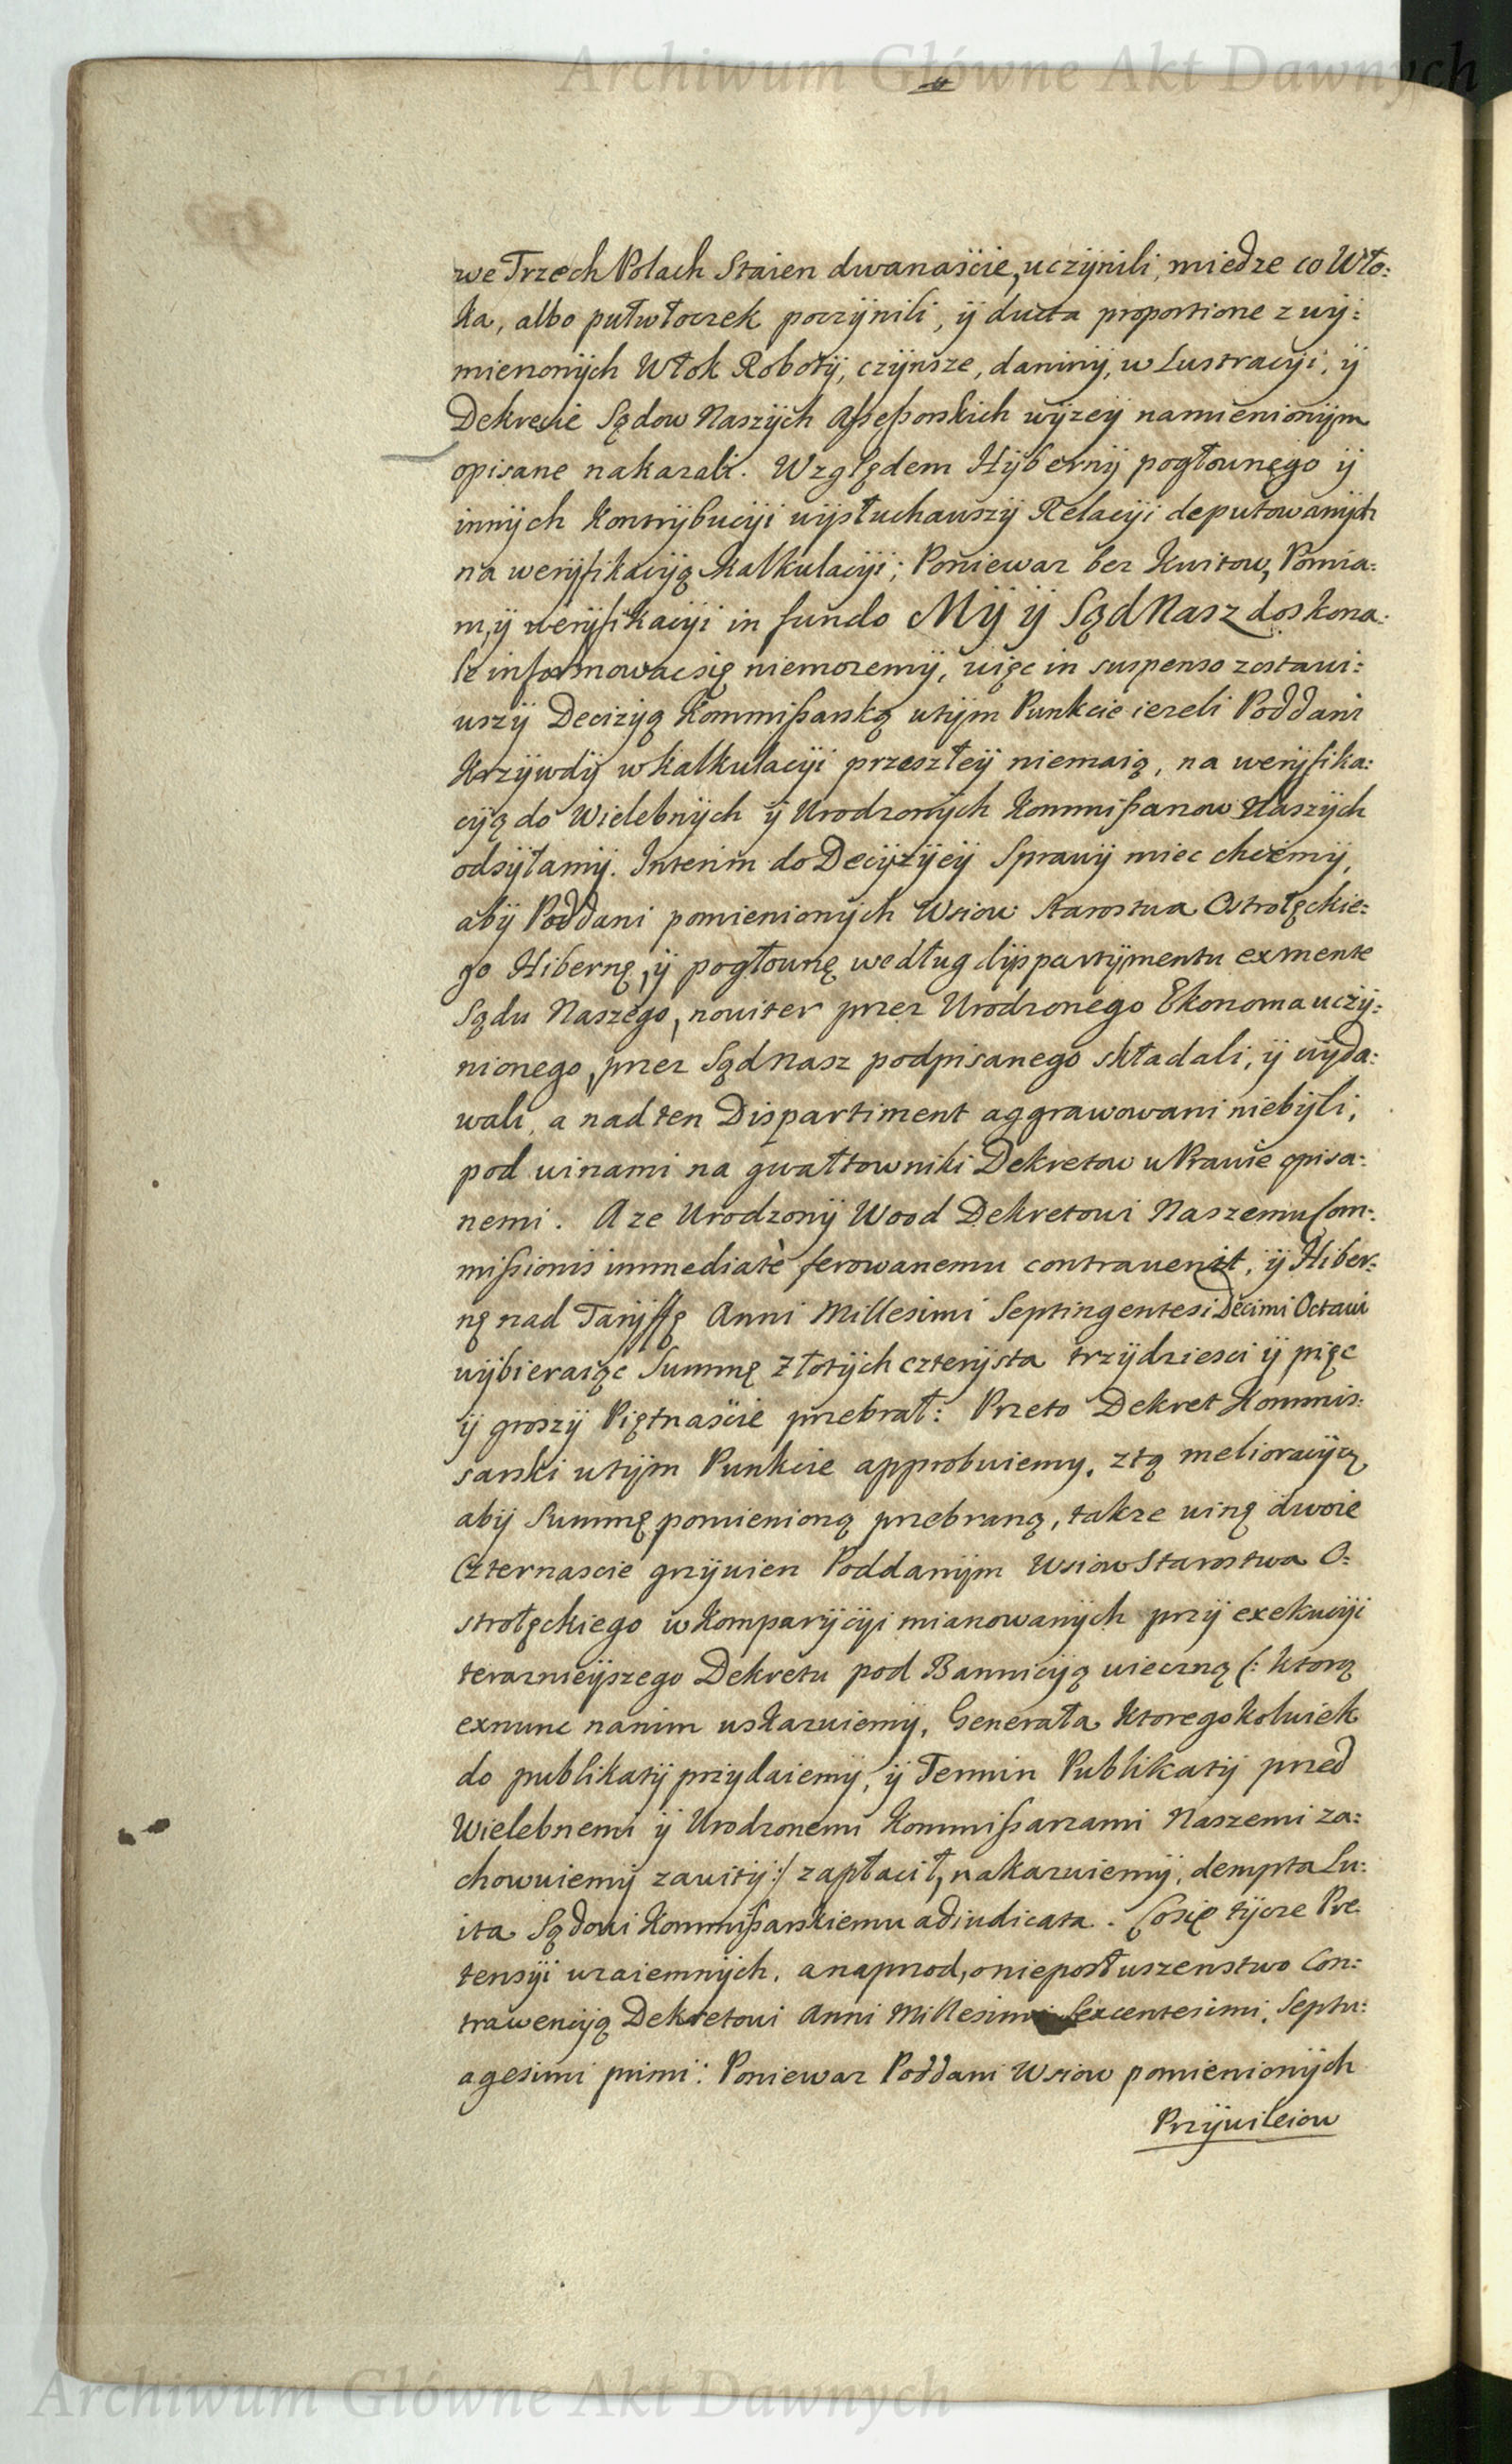 Archiwum Główne Akt Dawnych
we Trzech Polach Staien dwanaście, uczÿnili, miedze co Wło:
ka, albo pułwłoczek poczÿnili, ÿ ducta proportione z wÿ:
mienonÿch Włok Robotÿ, czÿnsze, daninÿ, w Lustracÿi, ÿ
Dekrecie Sądow Naszÿch Aßeßorskich wÿzeÿ namienionÿm
opisane nakazali. Względem Hÿbernÿ pogłownego ÿ
innÿch Kontrÿbucÿi wÿsłuchawszÿ Relacÿi deputowanÿch
na werÿfikacÿą Kalkulacÿi; Poniewaz bez Kwitow, Pomia:
rų ÿ werÿfikacÿi in fundo MŸ ÿ Sąd Nasz doskona:
le informowac się niemozemÿ, więc in suspenso zostawi:
wszÿ Decizÿą Kommißarską wtÿm Punkcie iezeli Poddani
Krzÿwdÿ w Kalkulacÿi przeszłeÿ niemaią, na werÿfika:
cÿą do Wielebnÿch ÿ Urodzonÿch Kommißarzow Naszÿch
odsÿłamÿ. Interim do Decÿzÿi teÿ Sprawÿ miec chcemÿ,
abÿ Poddani pomienionÿch Wsiow Starostwa Ostrołęckie:
go Hibernę, ÿ pogłowne według dÿspartÿmentu ex mente
Sądu Naszego, noviter przez Urodzonego Ekonoma uczÿ:
nionego, przez Sąd Nasz podpisanego składali, ÿ wÿda:
wali, a nad ten Dispartiment aggrawowani niebÿli,
pod winami na gwałtowniki Dekretow w Prawie opisa:
nemi. A ze Urodzonÿ Wood Dekretowi Naszemu Com:
mißionis immediatè ferowanemu contravenit, ÿ Hiber:
nę nad Tarÿffę Anni Millesimi Septingentesi Decimi Octavi
wÿbieraiąc Summę Złotÿch czterÿsta trzÿdziesci ÿ pięc
ÿ groszÿ Piętnaście przebrał: Przeto Dekret Kommis:
sarski wtÿm Punkcie approbuiemy, ztą melioracÿą
abÿ Summę pomienioną przebraną, takze winę dwoie
Czternascie grzÿwien Poddanÿm Wsiow Starostwa O:
strołęckiego w Komparÿcÿi mianowanÿch przÿ exekucÿi
teraznieÿszego Dekretu pod Bannicÿą wieczną (: ktorą
exnunc nanim wskazuiemÿ, Generała Ktoregokolwiek
do publikatÿ przydaiemÿ, ÿ Termin Publikatÿ przed
Wielebnemi ÿ Urodzonemi Kommißarzami Naszemi za:
chowuiemÿ zawitÿ :/ zapłacił, nakazuiemÿ, dempta Lu:
ita Sądowi Kommißarskiemu adiudicata. Cosię tÿcze Pre
tensÿi wzaiemnÿch, a naprzod, o nieposłuszenstwo Con:
trawencÿą Dekretowi Anni Millesimi Sexcentesimi, Septu:
agesimi primi: Poniewaz Poddani Wsiow pomienionÿch
Przÿwileiow
Archiwum Główne Akt Dawnych